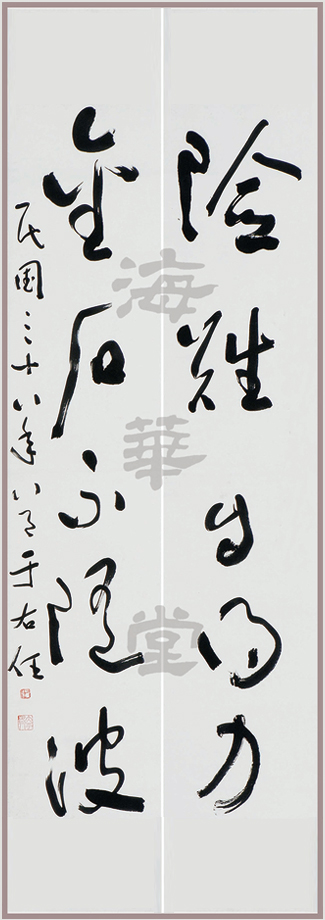 險難自得力
金石不隨波
民国三十八年八月于右任
海華堂